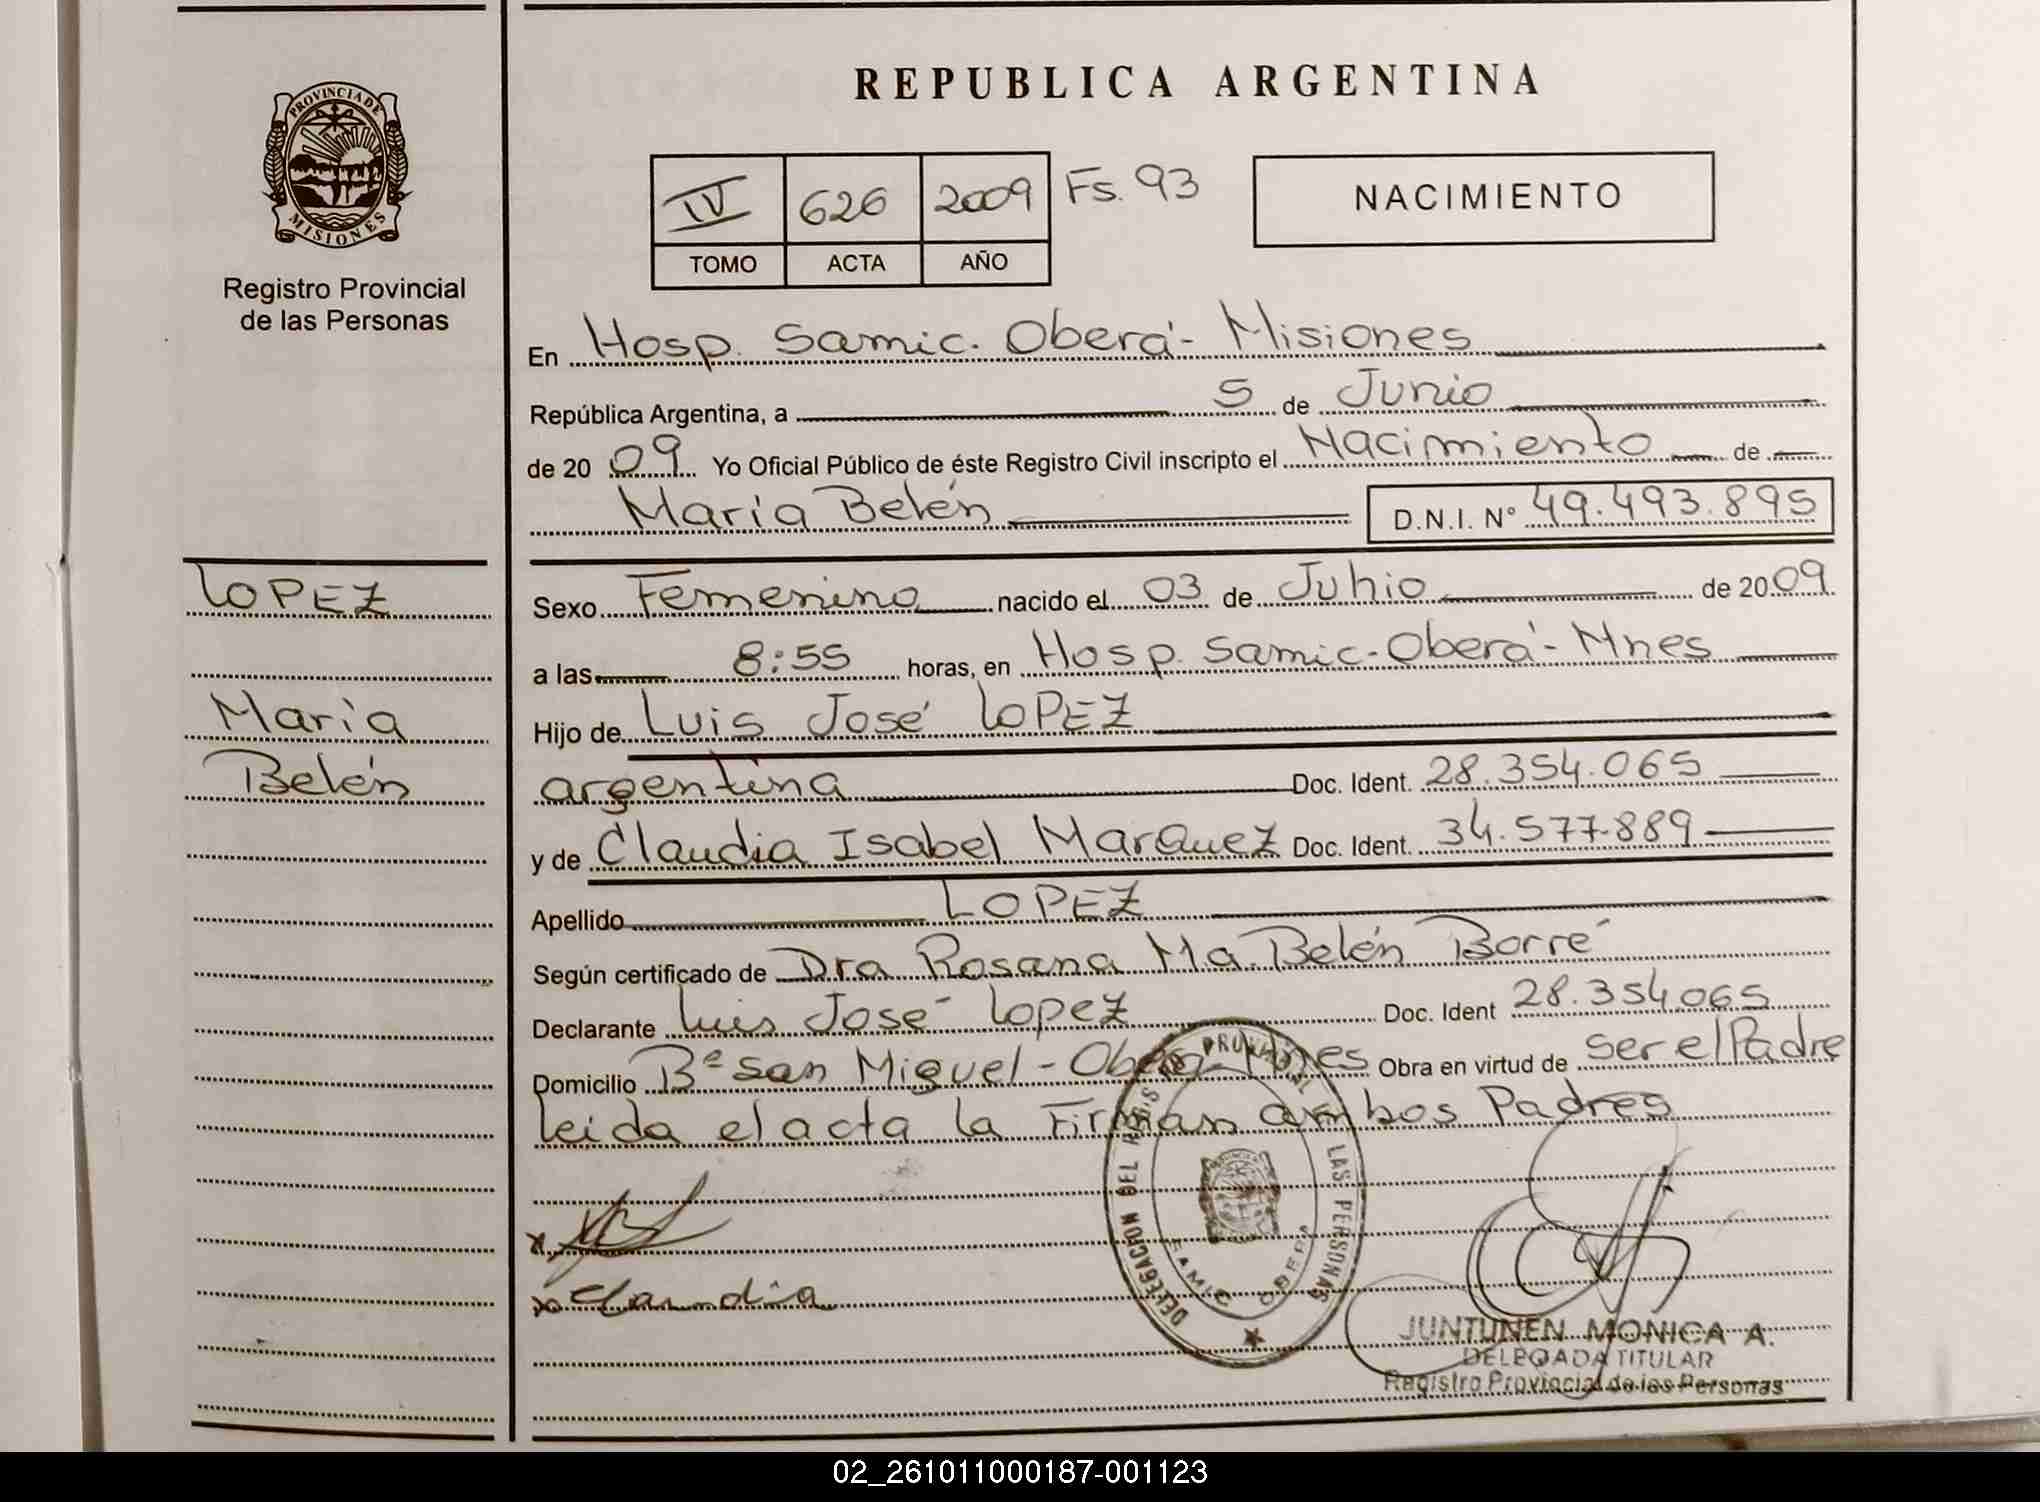 PROVINCIA DE
MISIONES
Registro Provincial
de las Personas
LOPEZ
María
Belén
REPUBLICA ARGENTINA
IV 626 2009 Fs. 93
TOMO ACTA AÑO
NACIMIENTO
En Hosp. Samic. Oberá - Misiones
República Argentina, a 5 de Junio
de 2009 Yo Oficial Público de éste Registro Civil inscripto el Nacimiento de
María Belén D.N.I. N° 49.493.895
Sexo Femenino nacido el 03 de Junio de 2009
a las 8:55 horas, en Hosp. Samic - Oberá - Mnes
Hijo de Luis José LOPEZ
argentina Doc. Ident. 28.354.065
y de Claudia Isabel MarQuez Doc. Ident. 34.577.889
Apellido LOPEZ
Según certificado de Dra Rosana Ma. Belén Borré
Declarante Luis José Lopez Doc. Ident 28.354.065
Domicilio Bº San Miguel - Oberá - Mnes Obra en virtud de ser el Padre
leida el acta la Firman ambos Padres
x
x Claudia
DELEGACION DEL LAS PERSONAS
SAMIC OBERA
JUNTUNEN MONICA A.
DELEGADA TITULAR
Registro Provincial de las Personas
02_261011000187-001123